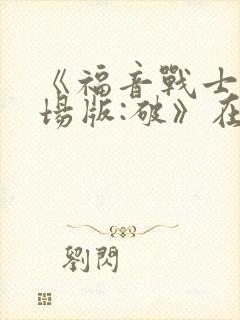 《福音戰士
場版:破》在
劉閃